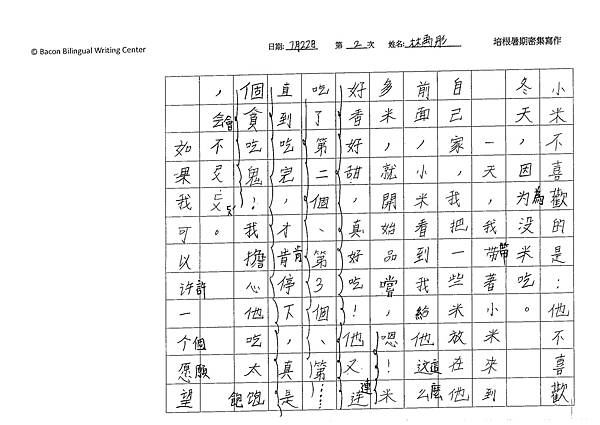 © Bacon Bilingual Writing Center
日期: 7月22日 第 2 次 姓名: 林
培根暑期密集寫作
小米不喜歡的是：他不喜歡
冬天，因为為没米吃。
一天，我带帶著小米來到
自己家，我把一些米放在他
前面，小米看到我給他这這么麼
多米，就開始品嚐，嗯！米
好香好甜，真好吃！他又连連
吃了第二個、第3個、第……
直到吃完，才肯肯停下，真是
個貪吃鬼！我擔心他吃太飽飽
，会會不
如果我可以许許一个個愿願望